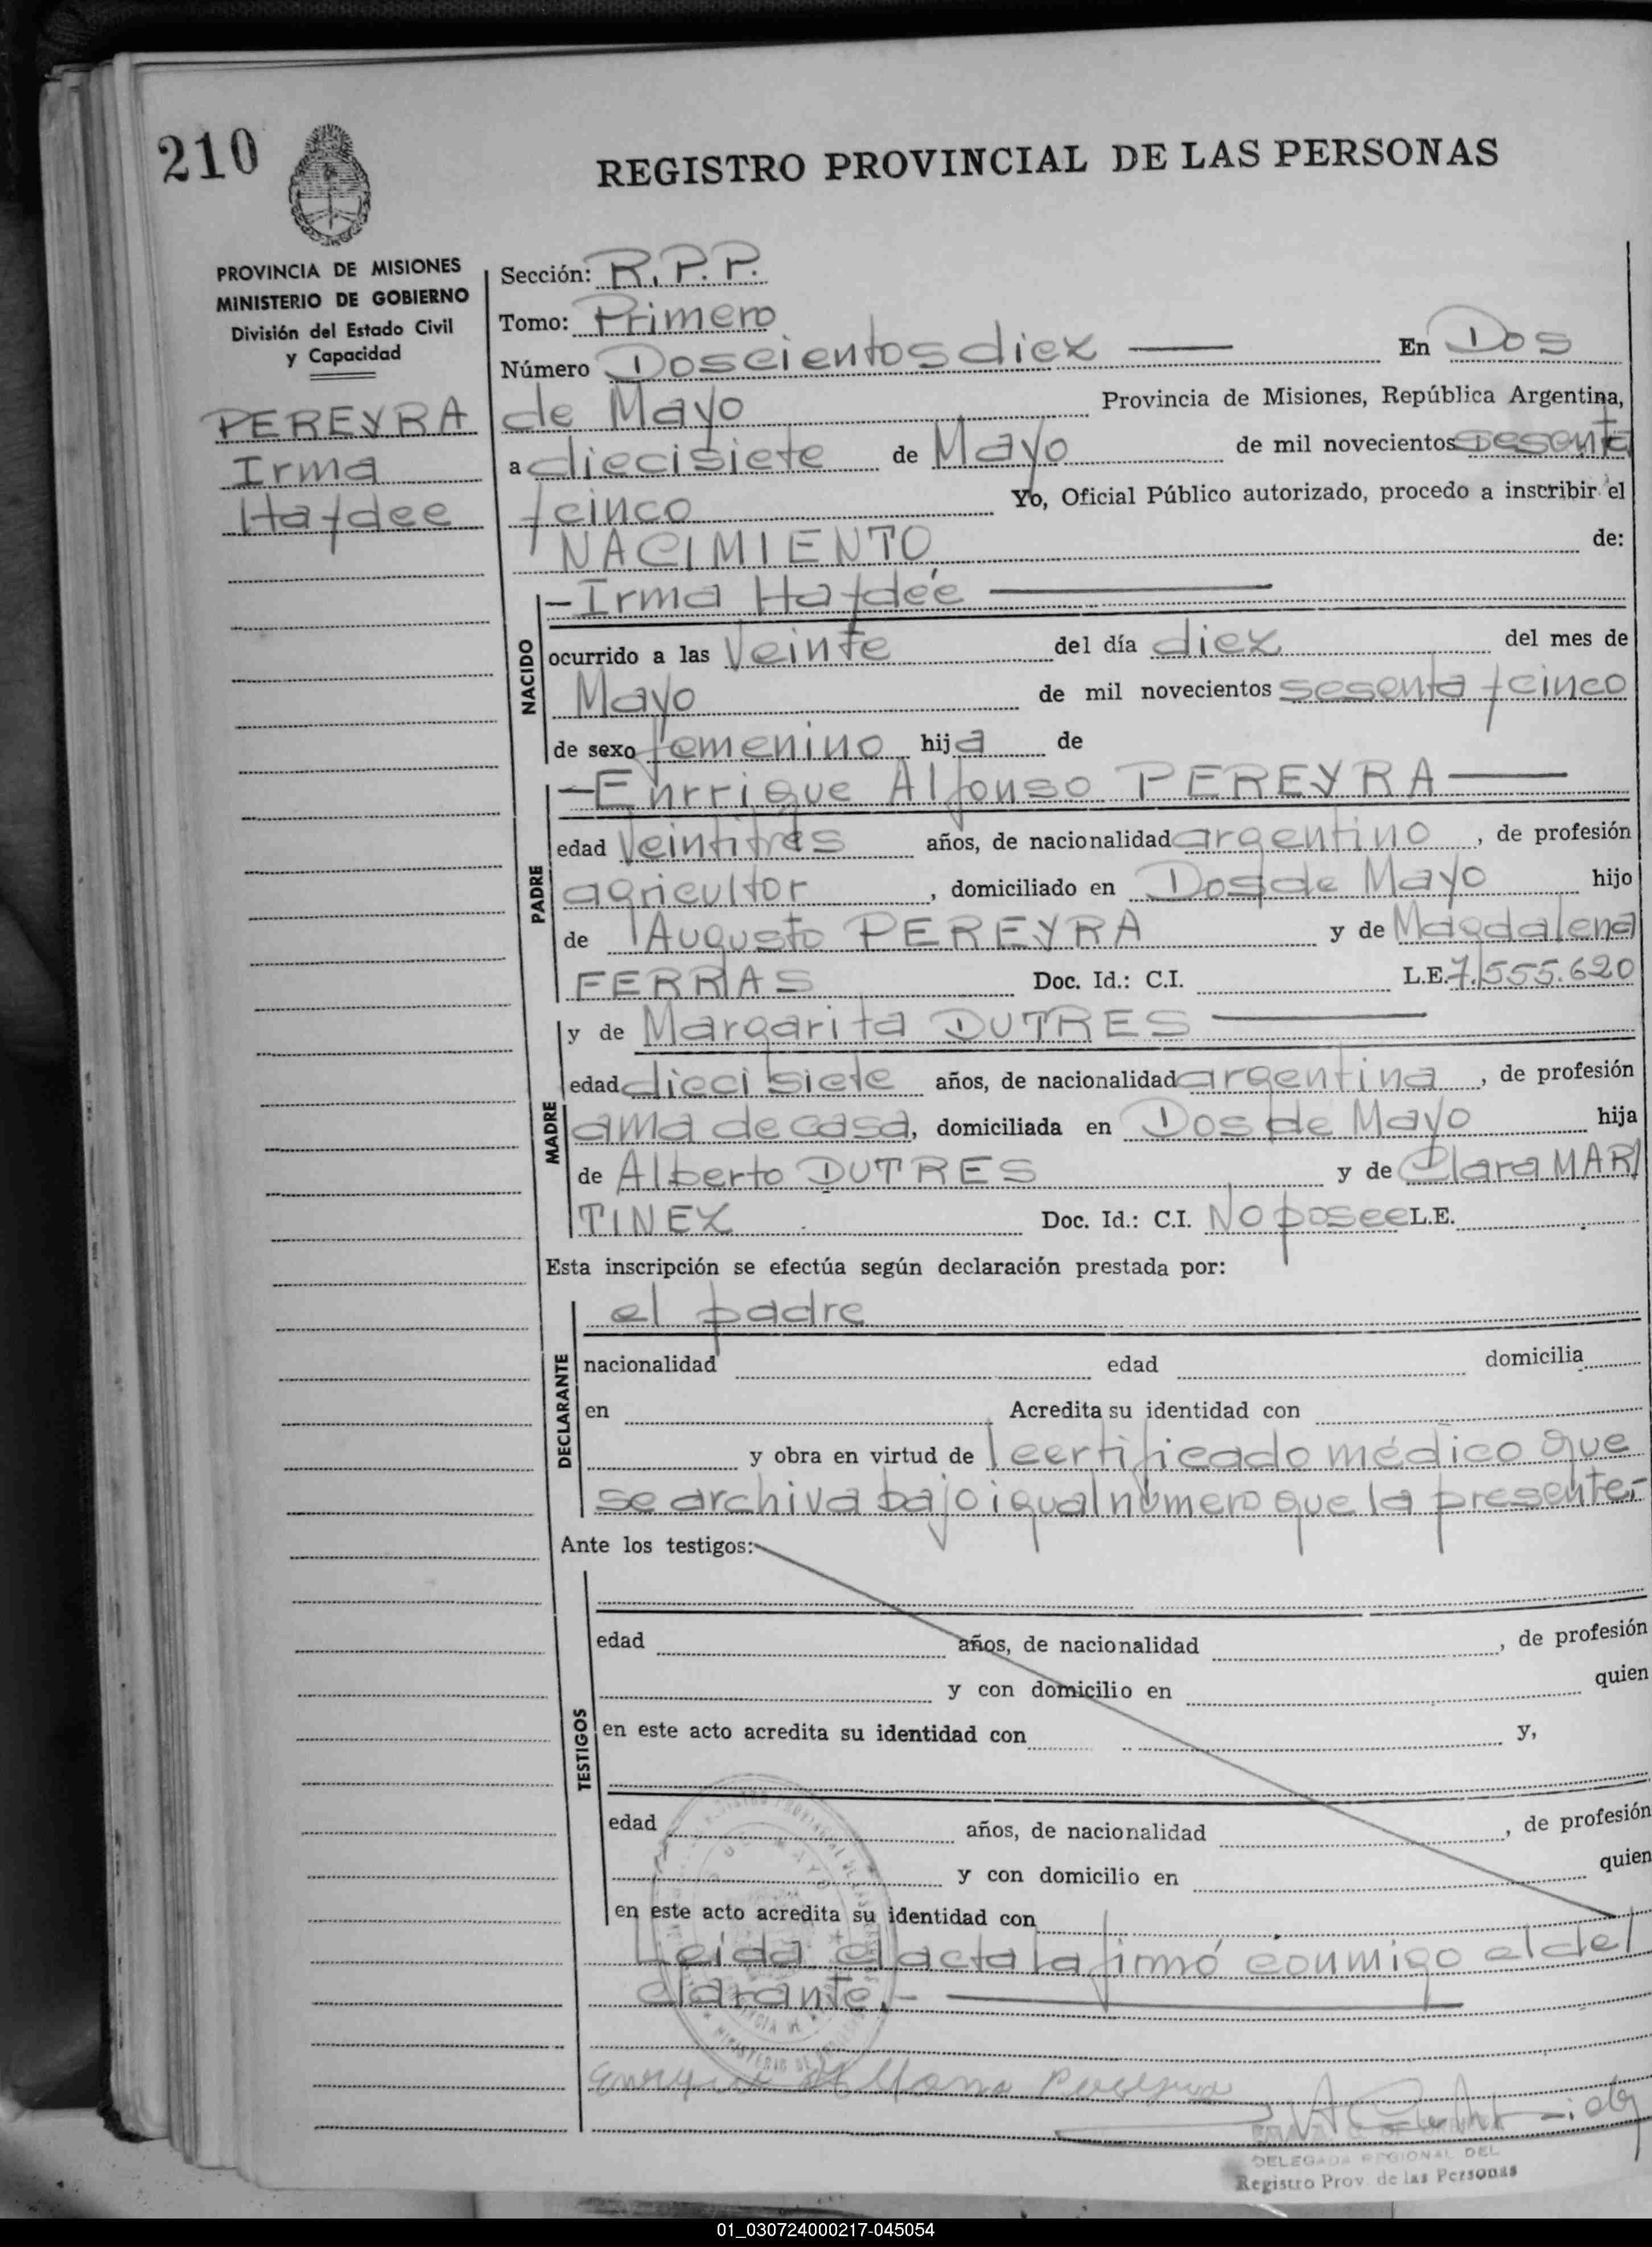 210
REGISTRO PROVINCIAL DE LAS PERSONAS
PROVINCIA DE MISIONES
MINISTERIO DE GOBIERNO
División del Estado Civil
y Capacidad
PEREYRA
Irma
Haydee
Sección: R.P.P.
Tomo: Primero
Número Doscientos diez — En Dos
de Mayo Provincia de Misiones, República Argentina,
a diecisiete de Mayo de mil novecientos sesenta
y cinco Yo, Oficial Público autorizado, procedo a inscribir el
NACIMIENTO de:
NACIDO
— Irma Haydée —
ocurrido a las Veinte del día diez del mes de
Mayo de mil novecientos sesenta y cinco
de sexo femenino hija de
PADRE
— Enrrique Alfonso PEREYRA —
edad Veintitrés años, de nacionalidad argentino, de profesión
agricultor, domiciliado en Dos de Mayo hijo
de Augusto PEREYRA y de Magdalena
FERRAS Doc. Id.: C.I. L.E. 7.555.620
MADRE
y de Margarita DUTRES —
edad diecisiete años, de nacionalidad argentina, de profesión
ama de casa, domiciliada en Dos de Mayo hija
de Alberto DUTRES y de Clara MAR
TINEZ Doc. Id.: C.I. No posee L.E.
Esta inscripción se efectúa según declaración prestada por:
DECLARANTE
el padre
nacionalidad edad domicilia
en Acredita su identidad con
y obra en virtud de certificado médico que
se archiva bajo igual número que la presente.-
Ante los testigos:
TESTIGOS
edad años, de nacionalidad , de profesión
y con domicilio en quien
en este acto acredita su identidad con y,
edad años, de nacionalidad , de profesión
y con domicilio en quien
en este acto acredita su identidad con
Leída el acta la firmó conmigo el del
clarante.- —
Enrrique Alfonso Pereyra
DELEGADA REGIONAL DEL
Registro Prov. de las Personas
01_030724000217-045054